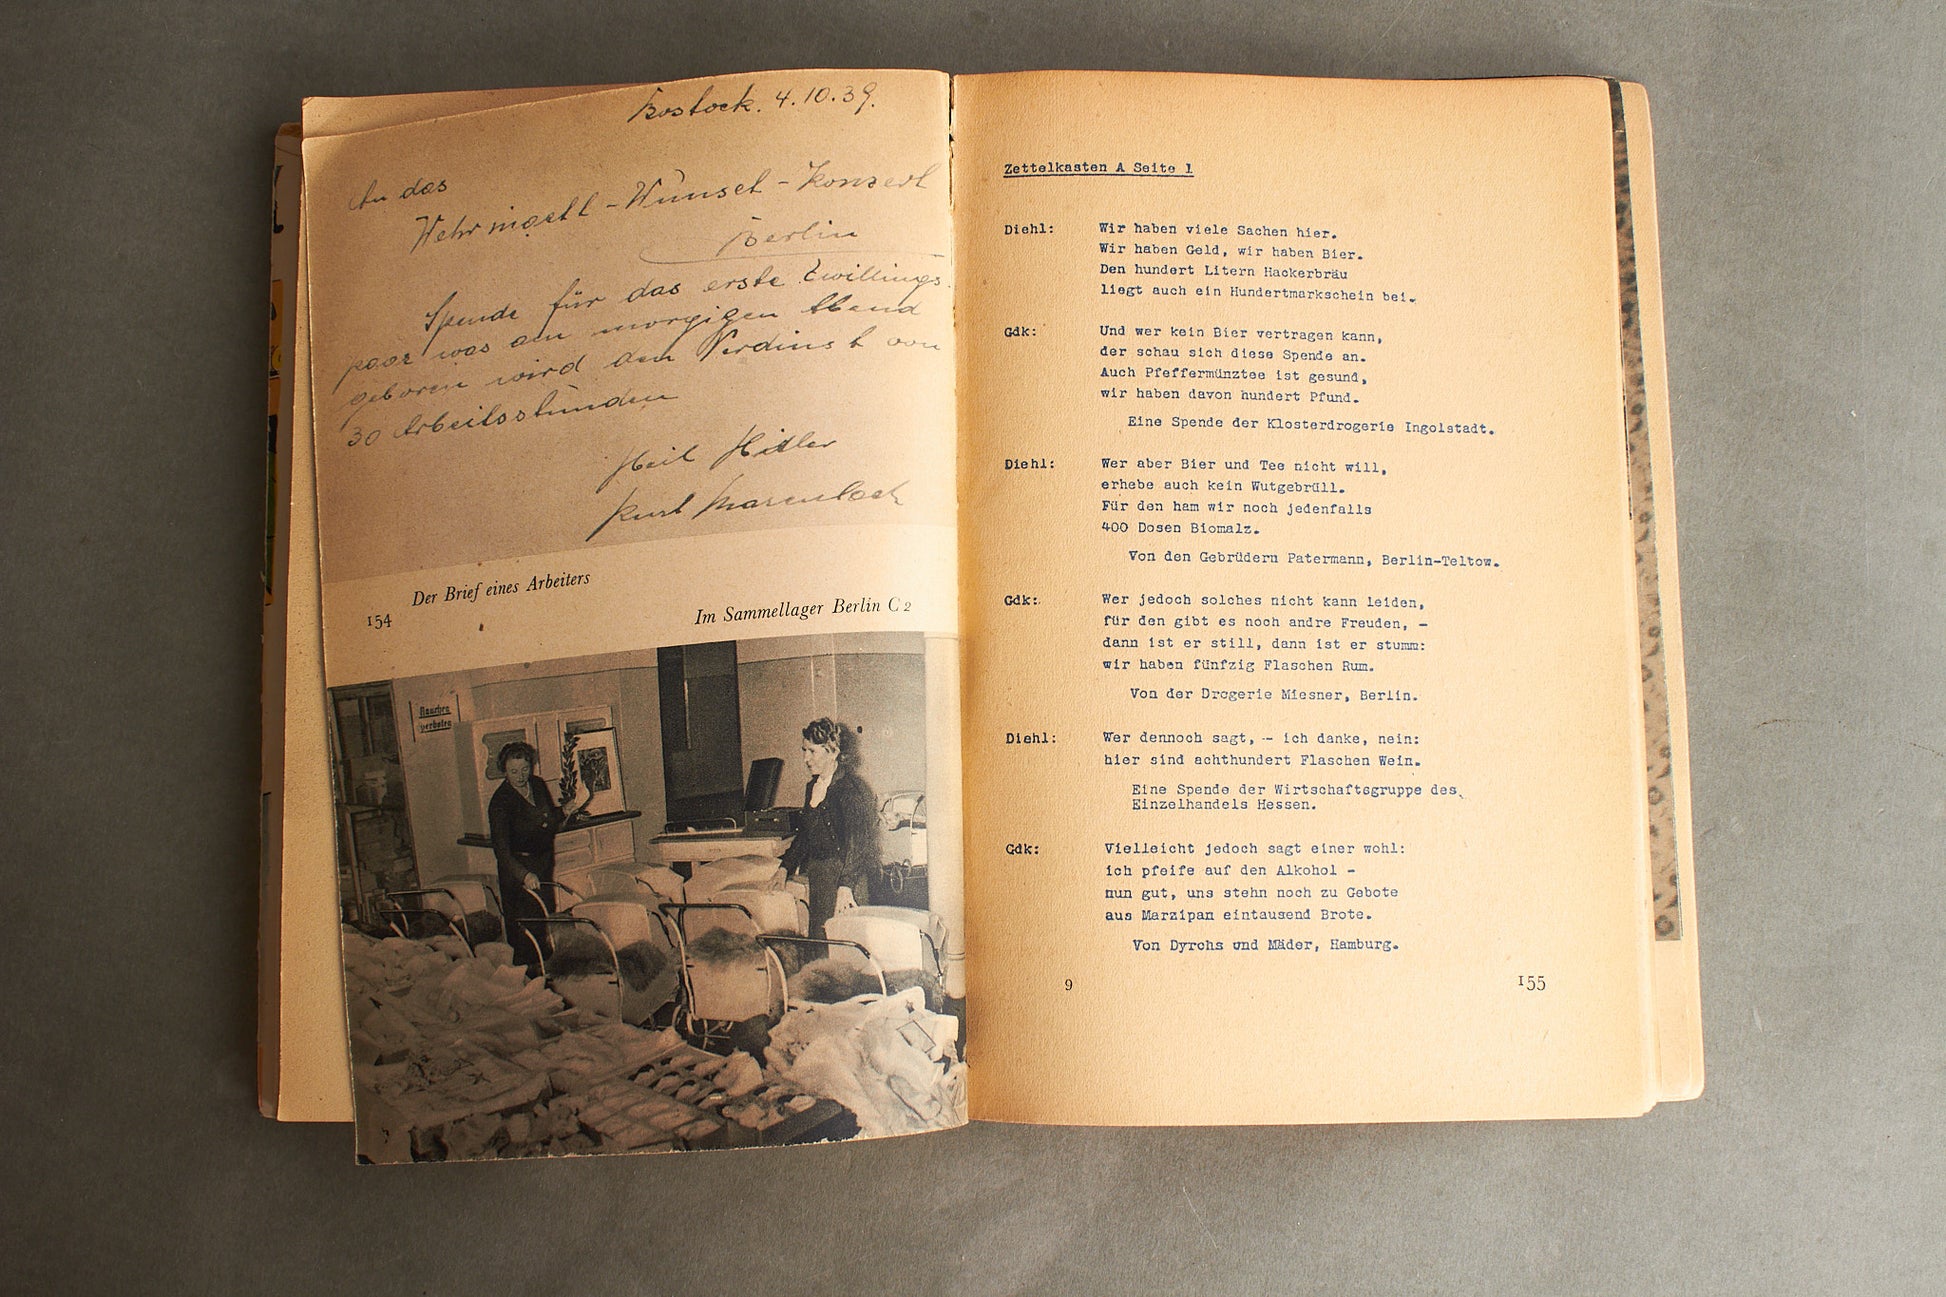 Rostock. 4.10.39.
An das
Wehrmacht-Wunsch-Konzert
Berlin
Spende für das erste Zwillings-
paar was am morgigen Abend
geboren wird den Verdinst von
30 Arbeitsstunden
Heil Hitler
Kurt
Der Brief eines Arbeiters
154
Im Sammellager Berlin C 2
Rauchen
verboten
Zettelkasten A Seite 1
Diehl: Wir haben viele Sachen hier.
Wir haben Geld, wir haben Bier.
Den hundert Litern Hackerbräu
liegt auch ein Hundertmarkschein bei.
Gdk: Und wer kein Bier vertragen kann,
der schau sich diese Spende an.
Auch Pfeffermünztee ist gesund,
wir haben davon hundert Pfund.
Eine Spende der Klosterdrogerie Ingolstadt.
Diehl: Wer aber Bier und Tee nicht will,
erhebe auch kein Wutgebrüll.
Für den ham wir noch jedenfalls
400 Dosen Biomalz.
Von den Gebrüdern Patermann, Berlin-Teltow.
Gdk: Wer jedoch solches nicht kann leiden,
für den gibt es noch andre Freuden, -
dann ist er still, dann ist er stumm:
wir haben fünfzig Flaschen Rum.
Von der Drogerie Miesner, Berlin.
Diehl: Wer dennoch sagt, - ich danke, nein:
hier sind achthundert Flaschen Wein.
Eine Spende der Wirtschaftsgruppe des
Einzelhandels Hessen.
Gdk: Vielleicht jedoch sagt einer wohl:
ich pfeife auf den Alkohol -
nun gut, uns stehn noch zu Gebote
aus Marzipan eintausend Brote.
Von Dyrchs und Mäder, Hamburg.
9
155